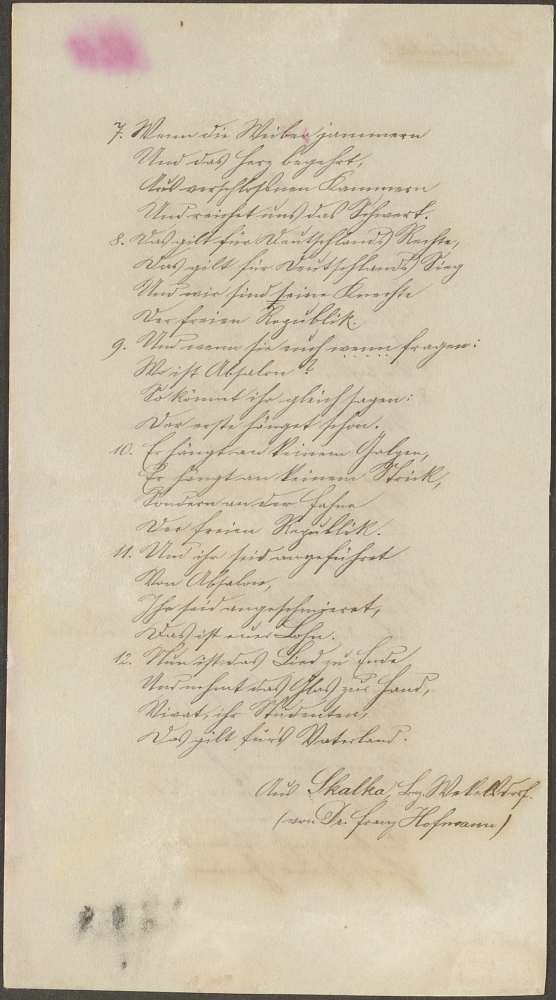 7. Wenn die Weiber jammern
Und das Herz begehrt,
Aus verschlossenen Kammern
Und reichet uns das Schwert.
8. Das gilt für Deutschlands Rechte,
Das gilt für Deutschlands Sieg
Und wir sind seine Knechte
Der freien Republik.
9. Und wenn sie euch wenn fragen:
Wo ist Absalon?
So könnet ihr gleich sagen:
Der erste hänget schon.
10. Er hängt an keinem Galgen,
Er hängt an keinem Strick,
Sondern an der Fahne
Der freien Republik.
11. Und ihr seid angeführet
Von Absalon,
Ihr seid angeschmieret,
Das ist euer Lohn.
12. Nun ist das Lied zu Ende
Und nehmt das Glas zur Hand,
Vivat, ihr Studenten,
Das gilt für's Vaterland.
Aus Skalka, Bez. Wekelsdorf.
(von Dr. Franz Hofmann)